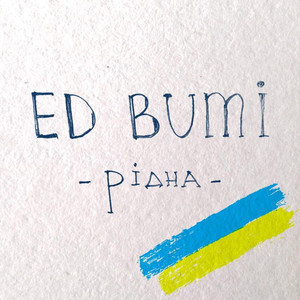 ED BUMi
- рідна -